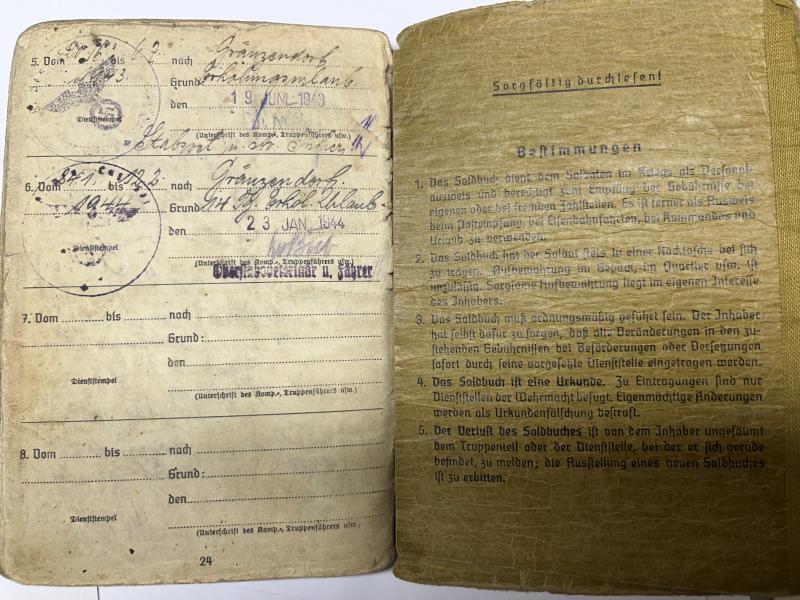 5. Vom 20.6. bis 6.7. nach Gränzendorf
1943 Grund: Erholungsurlaub
den 19 JUNI 1943
Dienststempel
(Unterschrift des Komp.-, Truppenführers usw.)
Stabsvet. u.
6. Vom 24.1. bis nach Gränzendorf
1944 Grund: 14 Tg. Erhol. Urlaub
den 23 JAN. 1944
Dienststempel
(Unterschrift des Komp.-, Truppenführers usw.)
Oberstabsveterinär u. Führer
7. Vom bis nach
Grund:
den
Dienststempel
(Unterschrift des Komp.-, Truppenführers usw.)
8. Vom bis nach
Grund:
den
Dienststempel
(Unterschrift des Komp.-, Truppenführers usw.)
24
Sorgfältig durchlesen!
Bestimmungen
1. Das Soldbuch dient dem Soldaten im Kriege als Personal-
ausweis und berechtigt zum Empfang der Gebührnisse bei
eigenen oder bei fremden Zahlstellen. Es ist ferner als Ausweis
beim Postempfang, bei Eisenbahnfahrten, bei Kommandos und
Urlaub zu verwenden.
2. Das Soldbuch hat der Soldat stets in einer Rocktasche bei sich
zu tragen. Aufbewahrung im Gepäck, im Quartier usw. ist
unzulässig. Sorgsame Aufbewahrung liegt im eigenen Interesse
des Inhabers.
3. Das Soldbuch muß ordnungsmäßig geführt sein. Der Inhaber
hat selbst dafür zu sorgen, daß alle Veränderungen in den zu-
stehenden Gebührnissen bei Beförderungen oder Versetzungen
sofort durch seine vorgesetzte Dienststelle eingetragen werden.
4. Das Soldbuch ist eine Urkunde. Zu Eintragungen sind nur
Dienststellen der Wehrmacht befugt. Eigenmächtige Änderungen
werden als Urkundenfälschung bestraft.
5. Der Verlust des Soldbuches ist von dem Inhaber ungesäumt
dem Truppenteil oder der Dienststelle, bei der er sich gerade
befindet, zu melden; die Ausstellung eines neuen Soldbuches
ist zu erbitten.